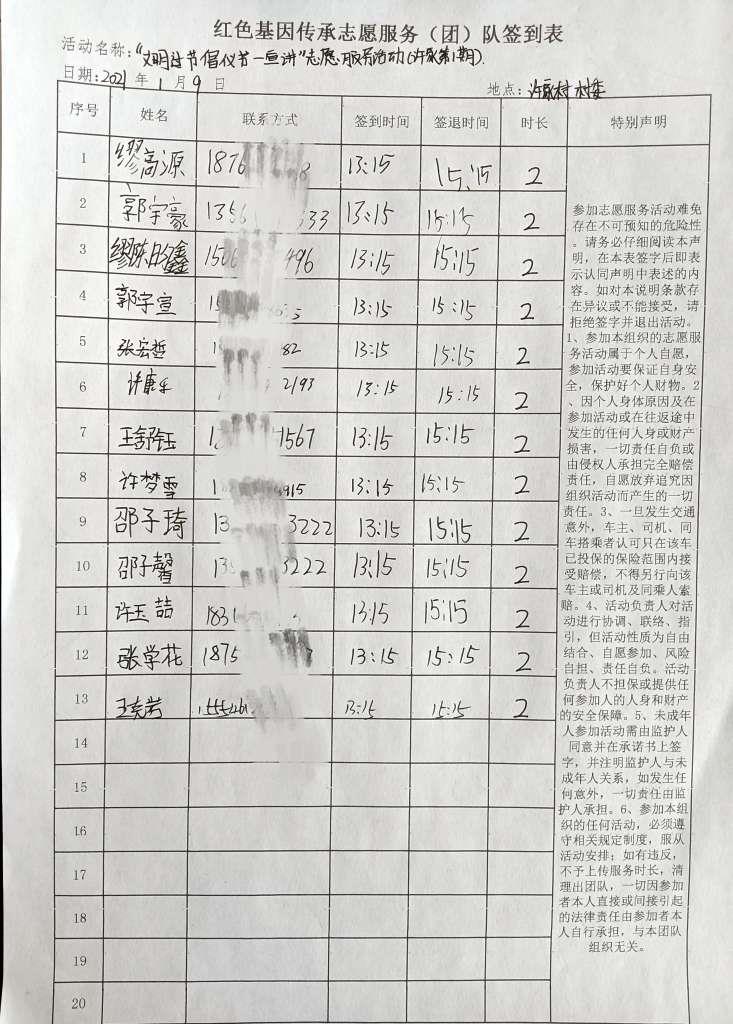 红色基因传承志愿服务（团）队签到表
活动名称：“文明过节倡仪书一宣讲”志愿服务活动(许家第1期)
日期：2021年1月9日 地点：许家村村委
序号 姓名 联系方式 签到时间 签退时间 时长 特别声明
1 缪高源 1876 8 13:15 15:15 2
2 郭宇豪 1356 333 13:15 15:15 2
3 缪陈昀鑫 1506 496 13:15 15:15 2
4 郭宇宣 15 13:15 15:15 2
5 张宏哲 1 82 13:15 15:15 2
6 许康乐 2193 13:15 15:15 2
7 王舒钰 1567 13:15 15:15 2
8 许梦雪 1 915 13:15 15:15 2
9 邵子琦 13 3222 13:15 15:15 2
10 邵子馨 13 3222 13:15 15:15 2
11 许玉喆 1831 13:15 15:15 2
12 张学花 1875 13:15 15:15 2
13 王 13:15 15:15 2
14
15
16
17
18
19
20
参加志愿服务活动难免
存在不可预知的危险性
。请务必仔细阅读本声
明，在本表签字后即表
示认同声明中表述的内
容。如对本说明条款存
在异议或不能接受，请
拒绝签字并退出活动。
1、参加本组织的志愿服
务活动属于个人自愿，
参加活动要保证自身安
全，保护好个人财物。2
、因个人身体原因及在
参加活动或在往返途中
发生的任何人身或财产
损害，一切责任自负或
由侵权人承担完全赔偿
责任，自愿放弃追究因
组织活动而产生的一切
责任。3、一旦发生交通
意外，车主、司机、同
车搭乘者认可只在该车
已投保的保险范围内接
受赔偿，不得另行向该
车主或司机及同乘人索
赔。4、活动负责人对活
动进行协调、联络、指
引，但活动性质为自由
结合、自愿参加、风险
自担、责任自负。活动
负责人不担保或提供任
何参加人的人身和财产
的安全保障。5、未成年
人参加活动需由监护人
同意并在承诺书上签
字，并注明监护人与未
成年人关系，如发生任
何意外，一切责任由监
护人承担。6、参加本组
织的任何活动，必须遵
守相关规定制度，服从
活动安排；如有违反，
不予上传服务时长，清
理出团队，一切因参加
者本人直接或间接引起
的法律责任由参加者本
人自行承担，与本团队
组织无关。